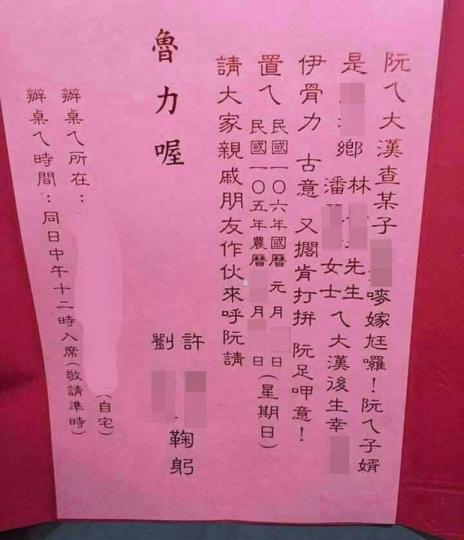 阮ㄟ大漢查某子 嘜嫁尪囉！阮ㄟ子婿
是 鄉 林 先生 潘 女士 ㄟ大漢後生幸
伊骨力 古意 又擱肯打拚 阮足呷意！
置ㄟ 民國一〇六年國曆 元月 日 民國一〇五年農曆 月 日(星期日)
請大家親戚朋友作伙來呼阮請
魯力喔
許
劉
鞠躬
辦桌ㄟ所在： (自宅)
辦桌ㄟ時間：同日中午十二時入席(敬請準時)